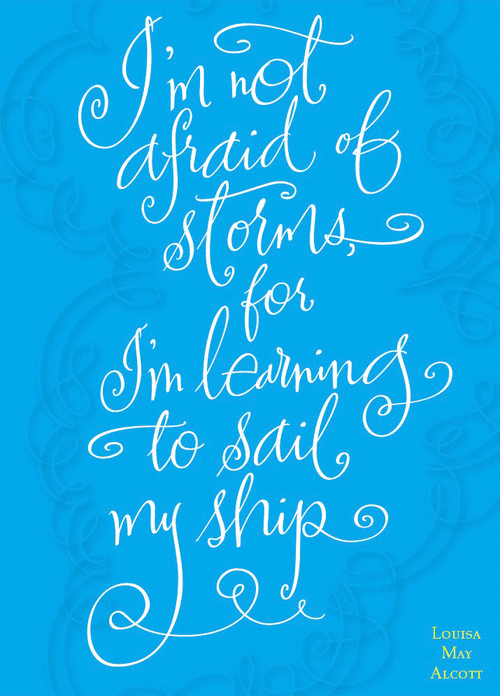 I'm not
afraid of
storms,
for
I'm learning
to sail
my ship
Louisa
May
Alcott